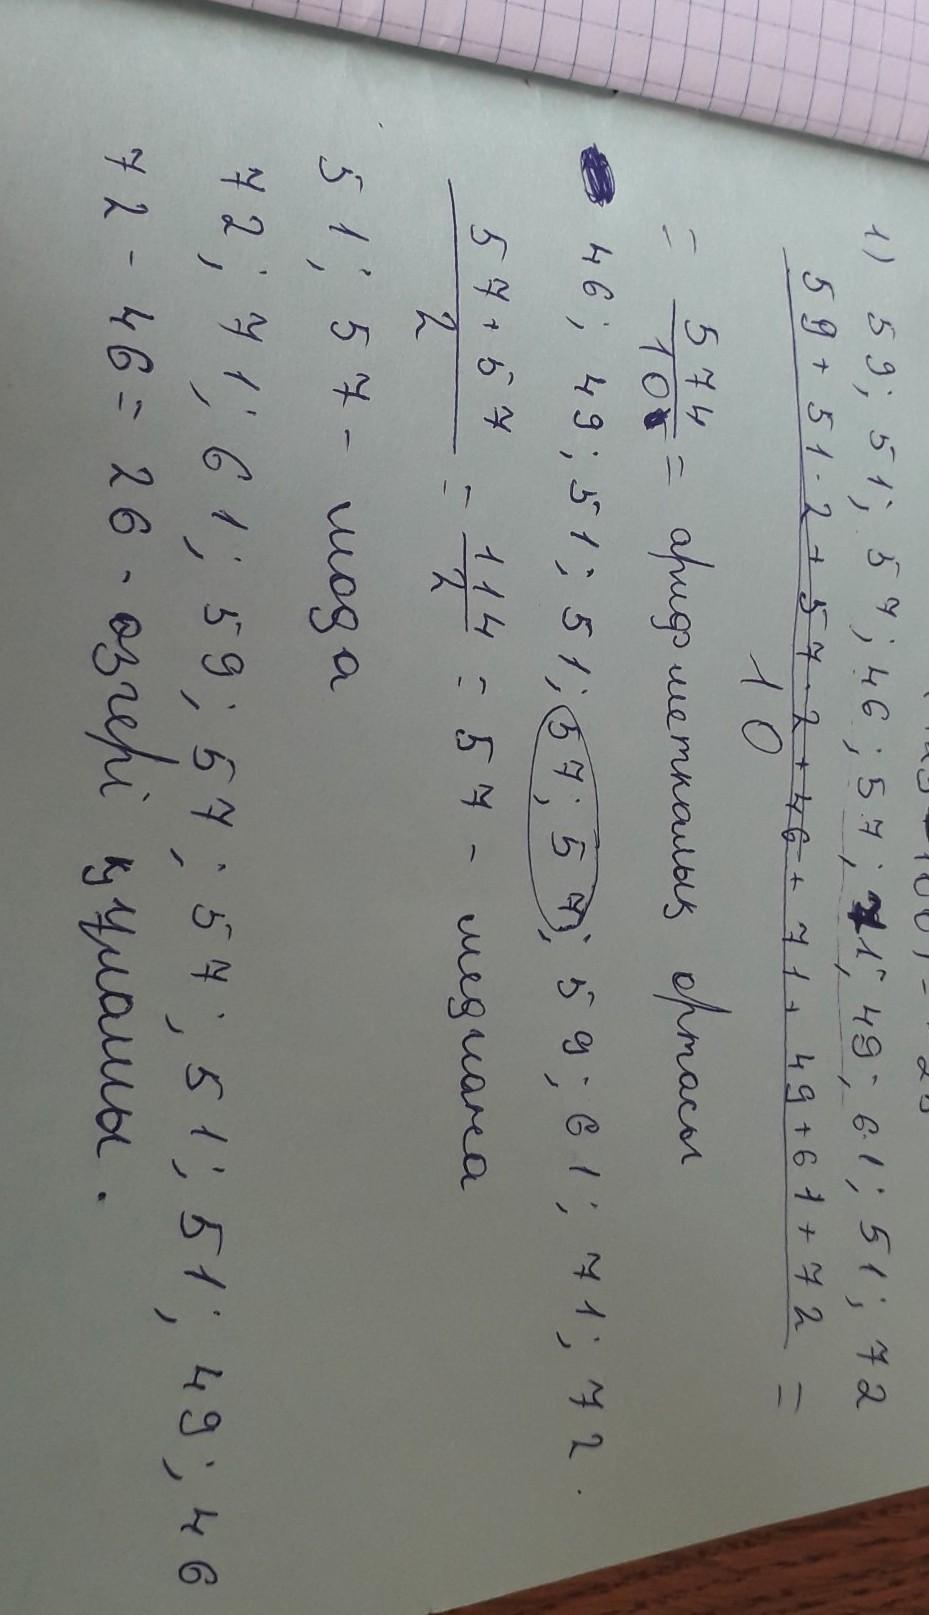 1) 59; 51; 57; 46; 57; 71; 49; 61; 51; 72
59+51·2+57·2+46+71+49+61+72 =
10
= 574/10 = арифметкалық ортасы
46; 49; 51; 51; 57; 57; 59; 61; 71; 72.
57+57/2 = 114/2 = 57 - медиана
51; 57 - мода
72; 71; 61; 59; 57; 57; 51; 51; 49; 46
72 - 46 = 26 - өзгері құлашы.